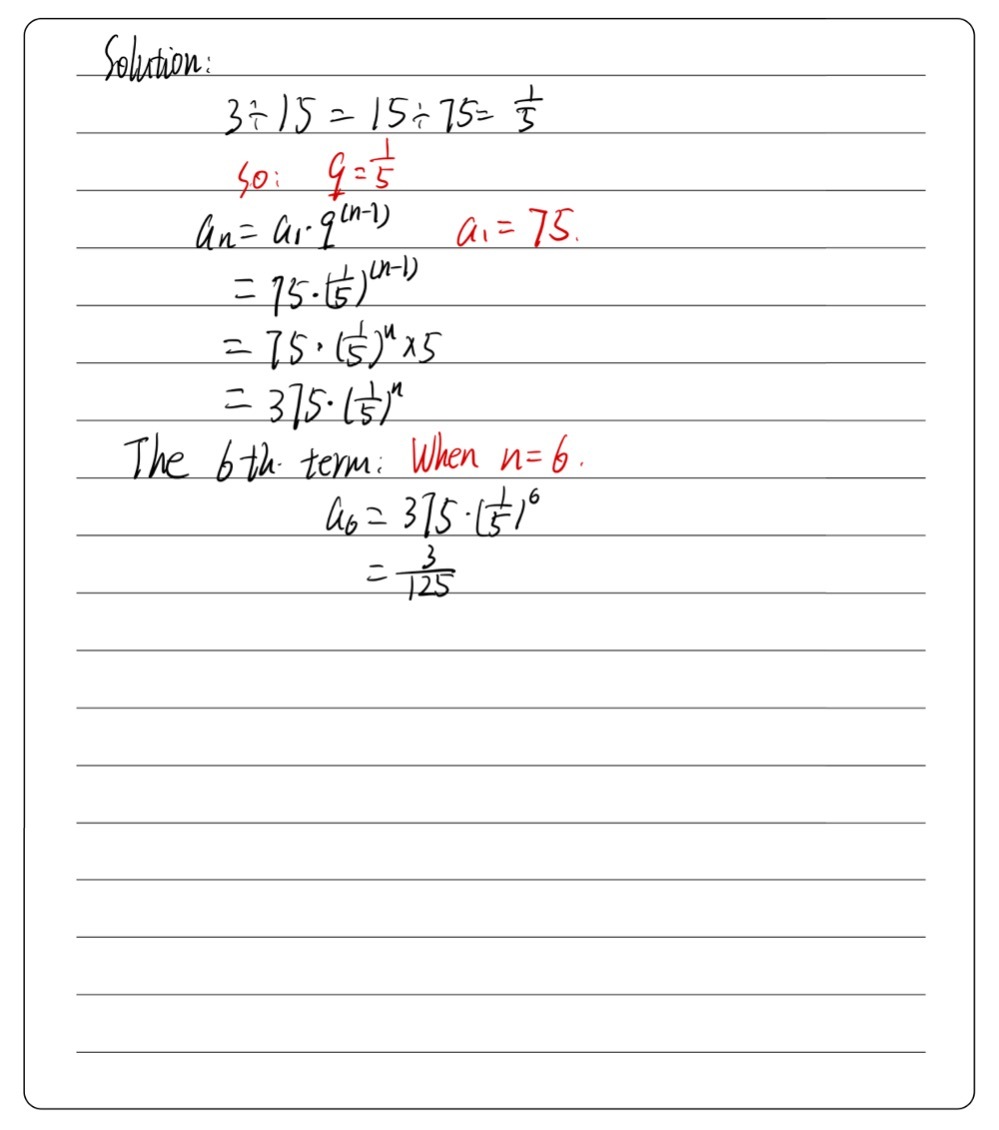 Solution:
3÷15 = 15÷75 = 1/5
so: q = 1/5
aₙ = a₁·q⁽ⁿ⁻¹⁾ a₁ = 75.
= 75·(1/5)⁽ⁿ⁻¹⁾
= 75·(1/5)ⁿ×5
= 375·(1/5)ⁿ
The 6th. term: When n = 6.
a₆ = 375·(1/5)⁶
= 3/125